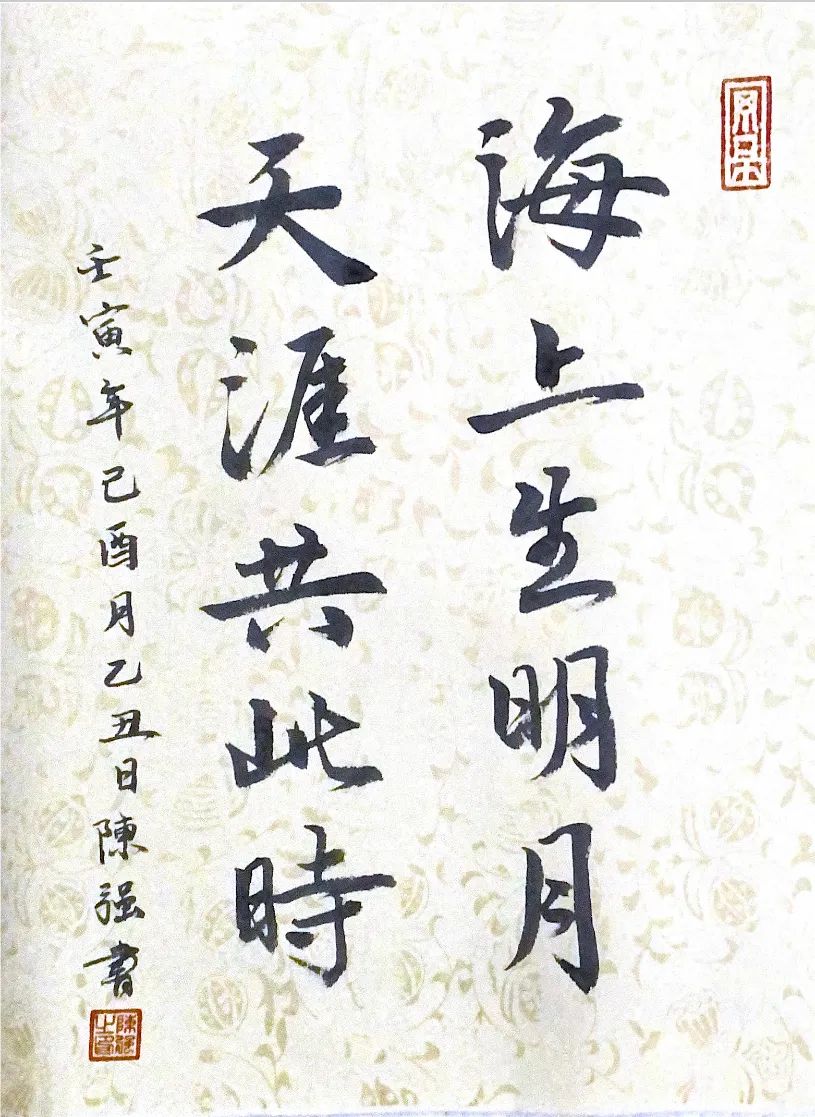 海上生明月
天涯共此時
壬寅年己酉月乙丑日陳强書
陳强之印